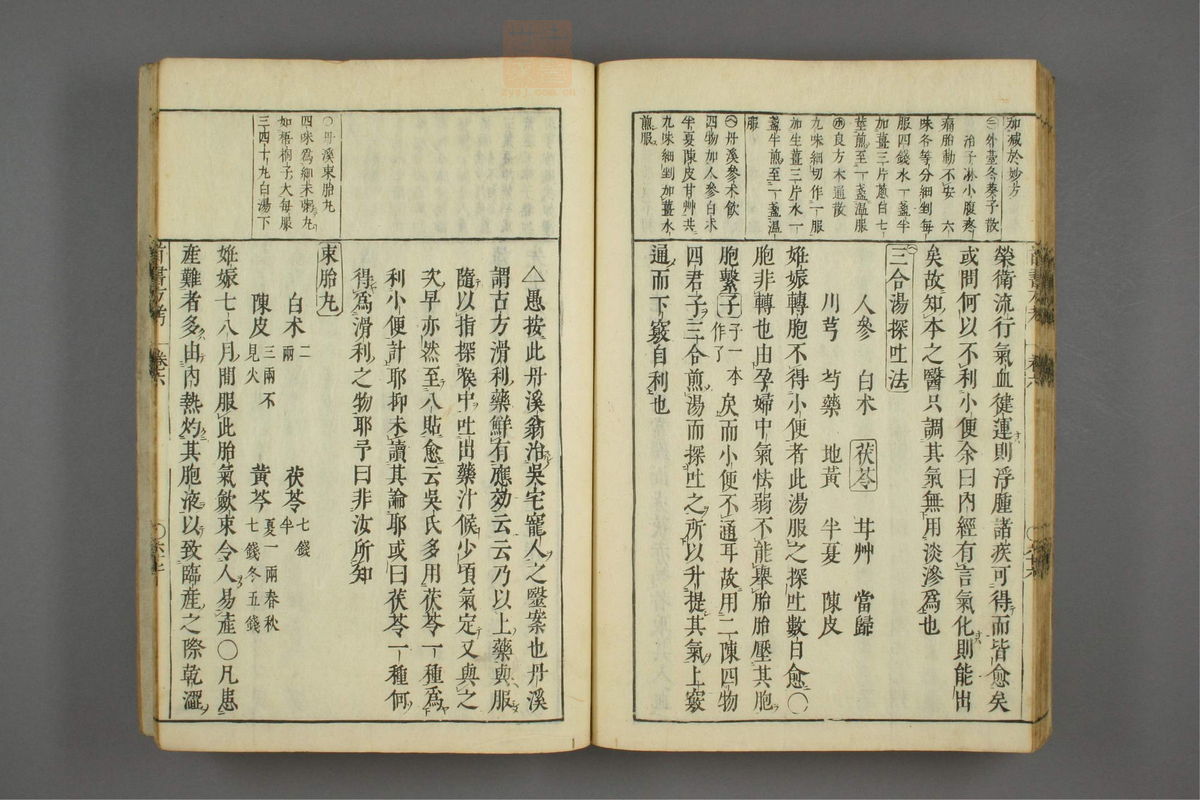 加減於妙方
㊂外臺冬葵子散
治子淋小腹疼
痛胎動不安 六
味各等分細剉每
服四錢水一盞半
加薑三片蔥白七
莖煎至一盞溫服
良方木通散
九味細切作一服
加生薑三片水一
盞半煎至一盞溫
服
丹溪參朮飲
四物加人參白朮
半夏陳皮甘艸共
九味細剉加薑水
煎服
榮衛流行氣血健運則浮腫諸疾可得而皆愈矣
或問何以不利小便余曰內經有言氣化則能出
矣故知本之醫只調其氣無用淡滲為也
三合湯探吐法
人參 白朮 茯苓 甘艸 當歸
川芎 芍藥 地黃 半夏 陳皮
姙娠轉胞不得小便者此湯服之探吐數日愈〇
胞非轉也由孕婦中氣怯弱不能舉胎胎壓其胞
胞繫子子一本作了矣而小便不通耳故用二陳四物
四君子三合煎湯而探吐之所以升提其氣上竅
通而下竅自利也
〇丹溪束胎丸
四味為細末粥丸
如梧桐子大每服
三四十丸白湯下
△愚按此丹溪翁治吳宅寵人之毉案也丹溪
謂古方滑利藥鮮有應効云云乃以上藥與服
隨以指探喉中吐出藥汁候少頃氣定又與之
次早亦然至八貼愈云吳氏多用茯苓一種為
利小便計耶抑未讀其論耶或曰茯苓一種何
得為滑利之物耶予曰非汝所知
束胎丸
白朮二兩 茯苓七錢半
陳皮三兩不見火 黃芩夏一兩春秋七錢冬五錢
姙娠七八月間服此胎氣歛束令人易產〇凡患
產難者多由內熱灼其胞液以致臨產之際乾澀
醫方考 卷六